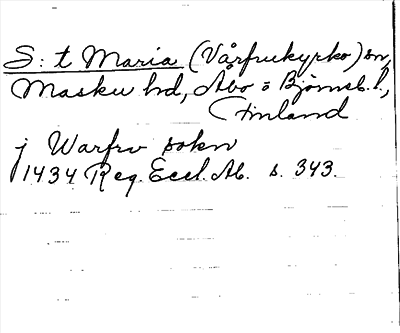 S:t Maria (Vårfrukyrko) sn,
Masku hd, Åbo o Björneb. l.,
Finland
j Warfrv sokn
1434 Reg. Eccl. Ab. s. 343.